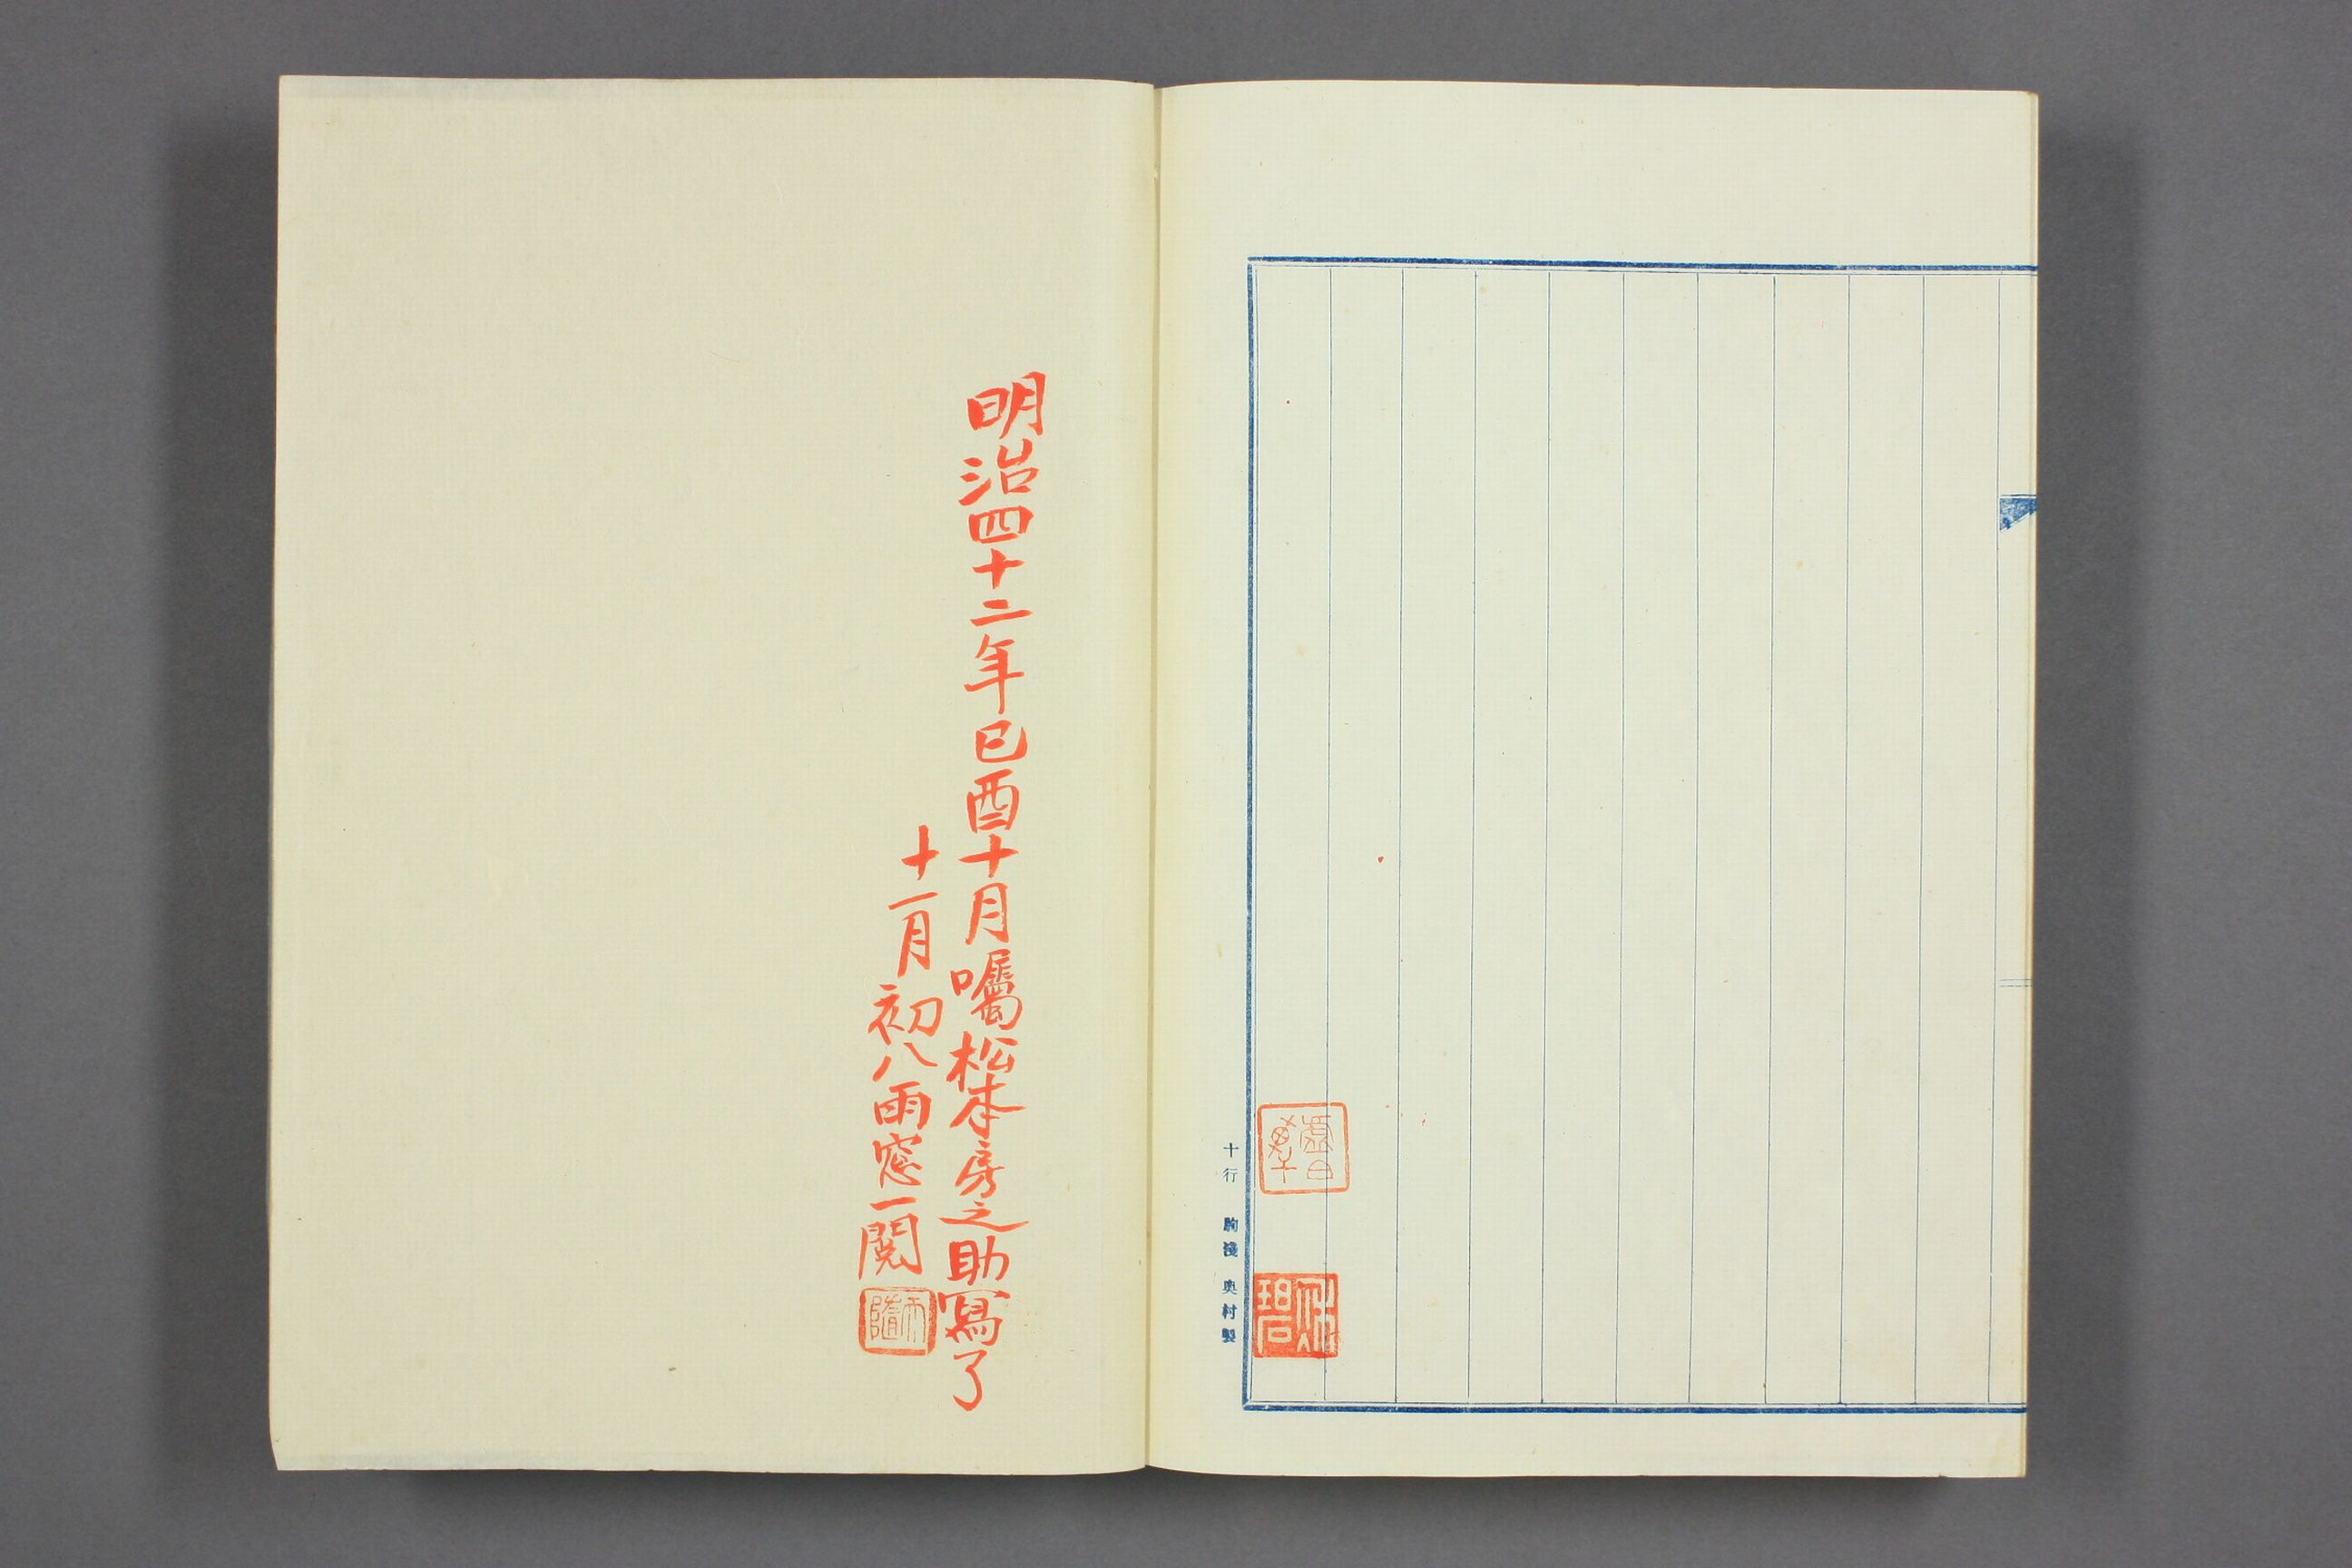 十行 駒淺 奥村製
明治四十二年己酉十月囑松本房之助寫了
十一月初八雨窓一閲